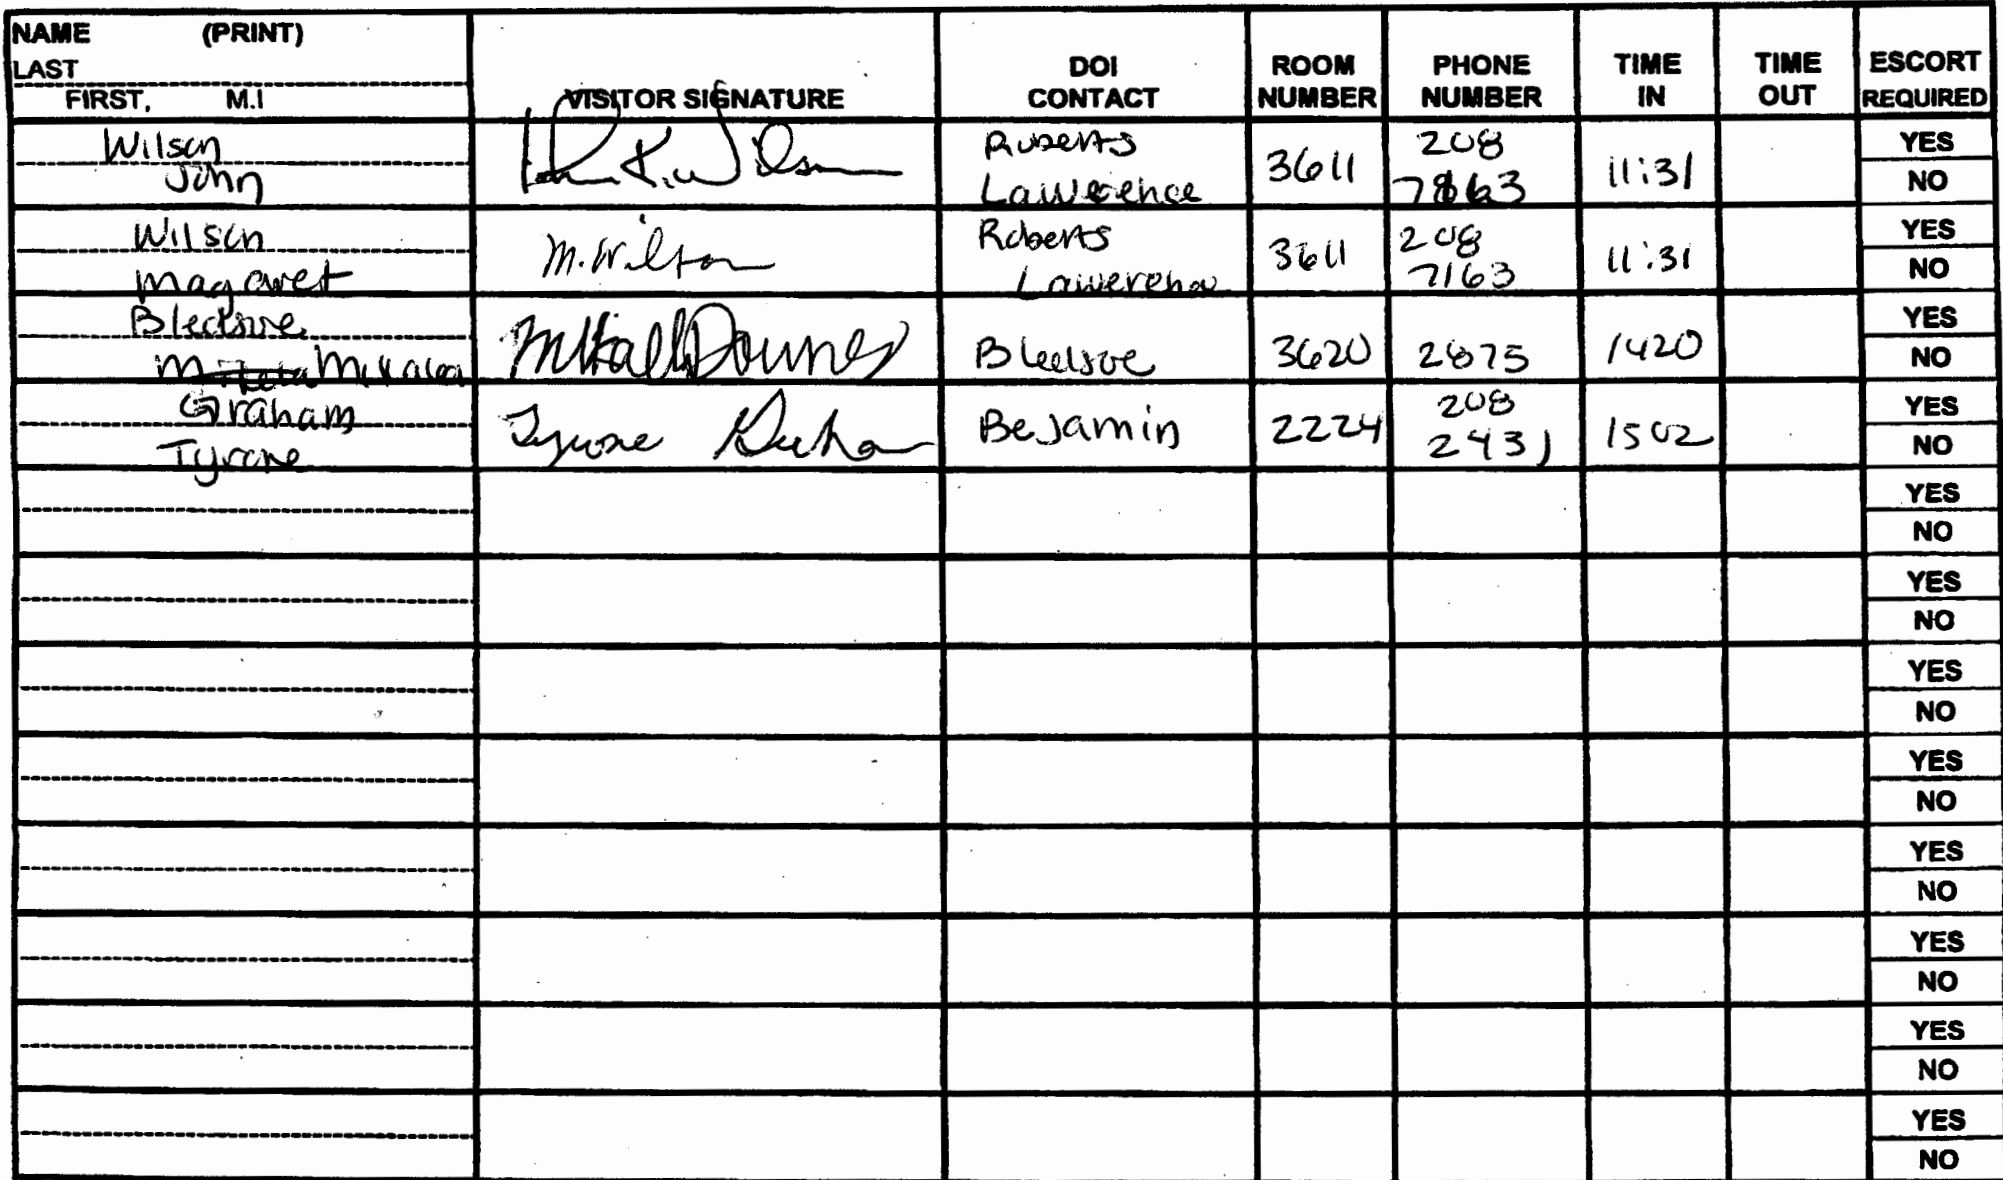 NAME (PRINT)
LAST
FIRST, M.I
VISITOR SIGNATURE
DOI CONTACT
ROOM NUMBER
PHONE NUMBER
TIME IN
TIME OUT
ESCORT REQUIRED
Wilson
John
Roberts
Lawerence
3611
208
11:31
YES
NO
Wilson
Magaret
M. Wilson
Roberts
3611
208
7163
11:31
YES
NO
3620
1420
YES
NO
Graham
Tyrone
Tyrone
BeJamin
2224
208
2431
1502
YES
NO
YES
NO
YES
NO
YES
NO
YES
NO
YES
NO
YES
NO
YES
NO
YES
NO